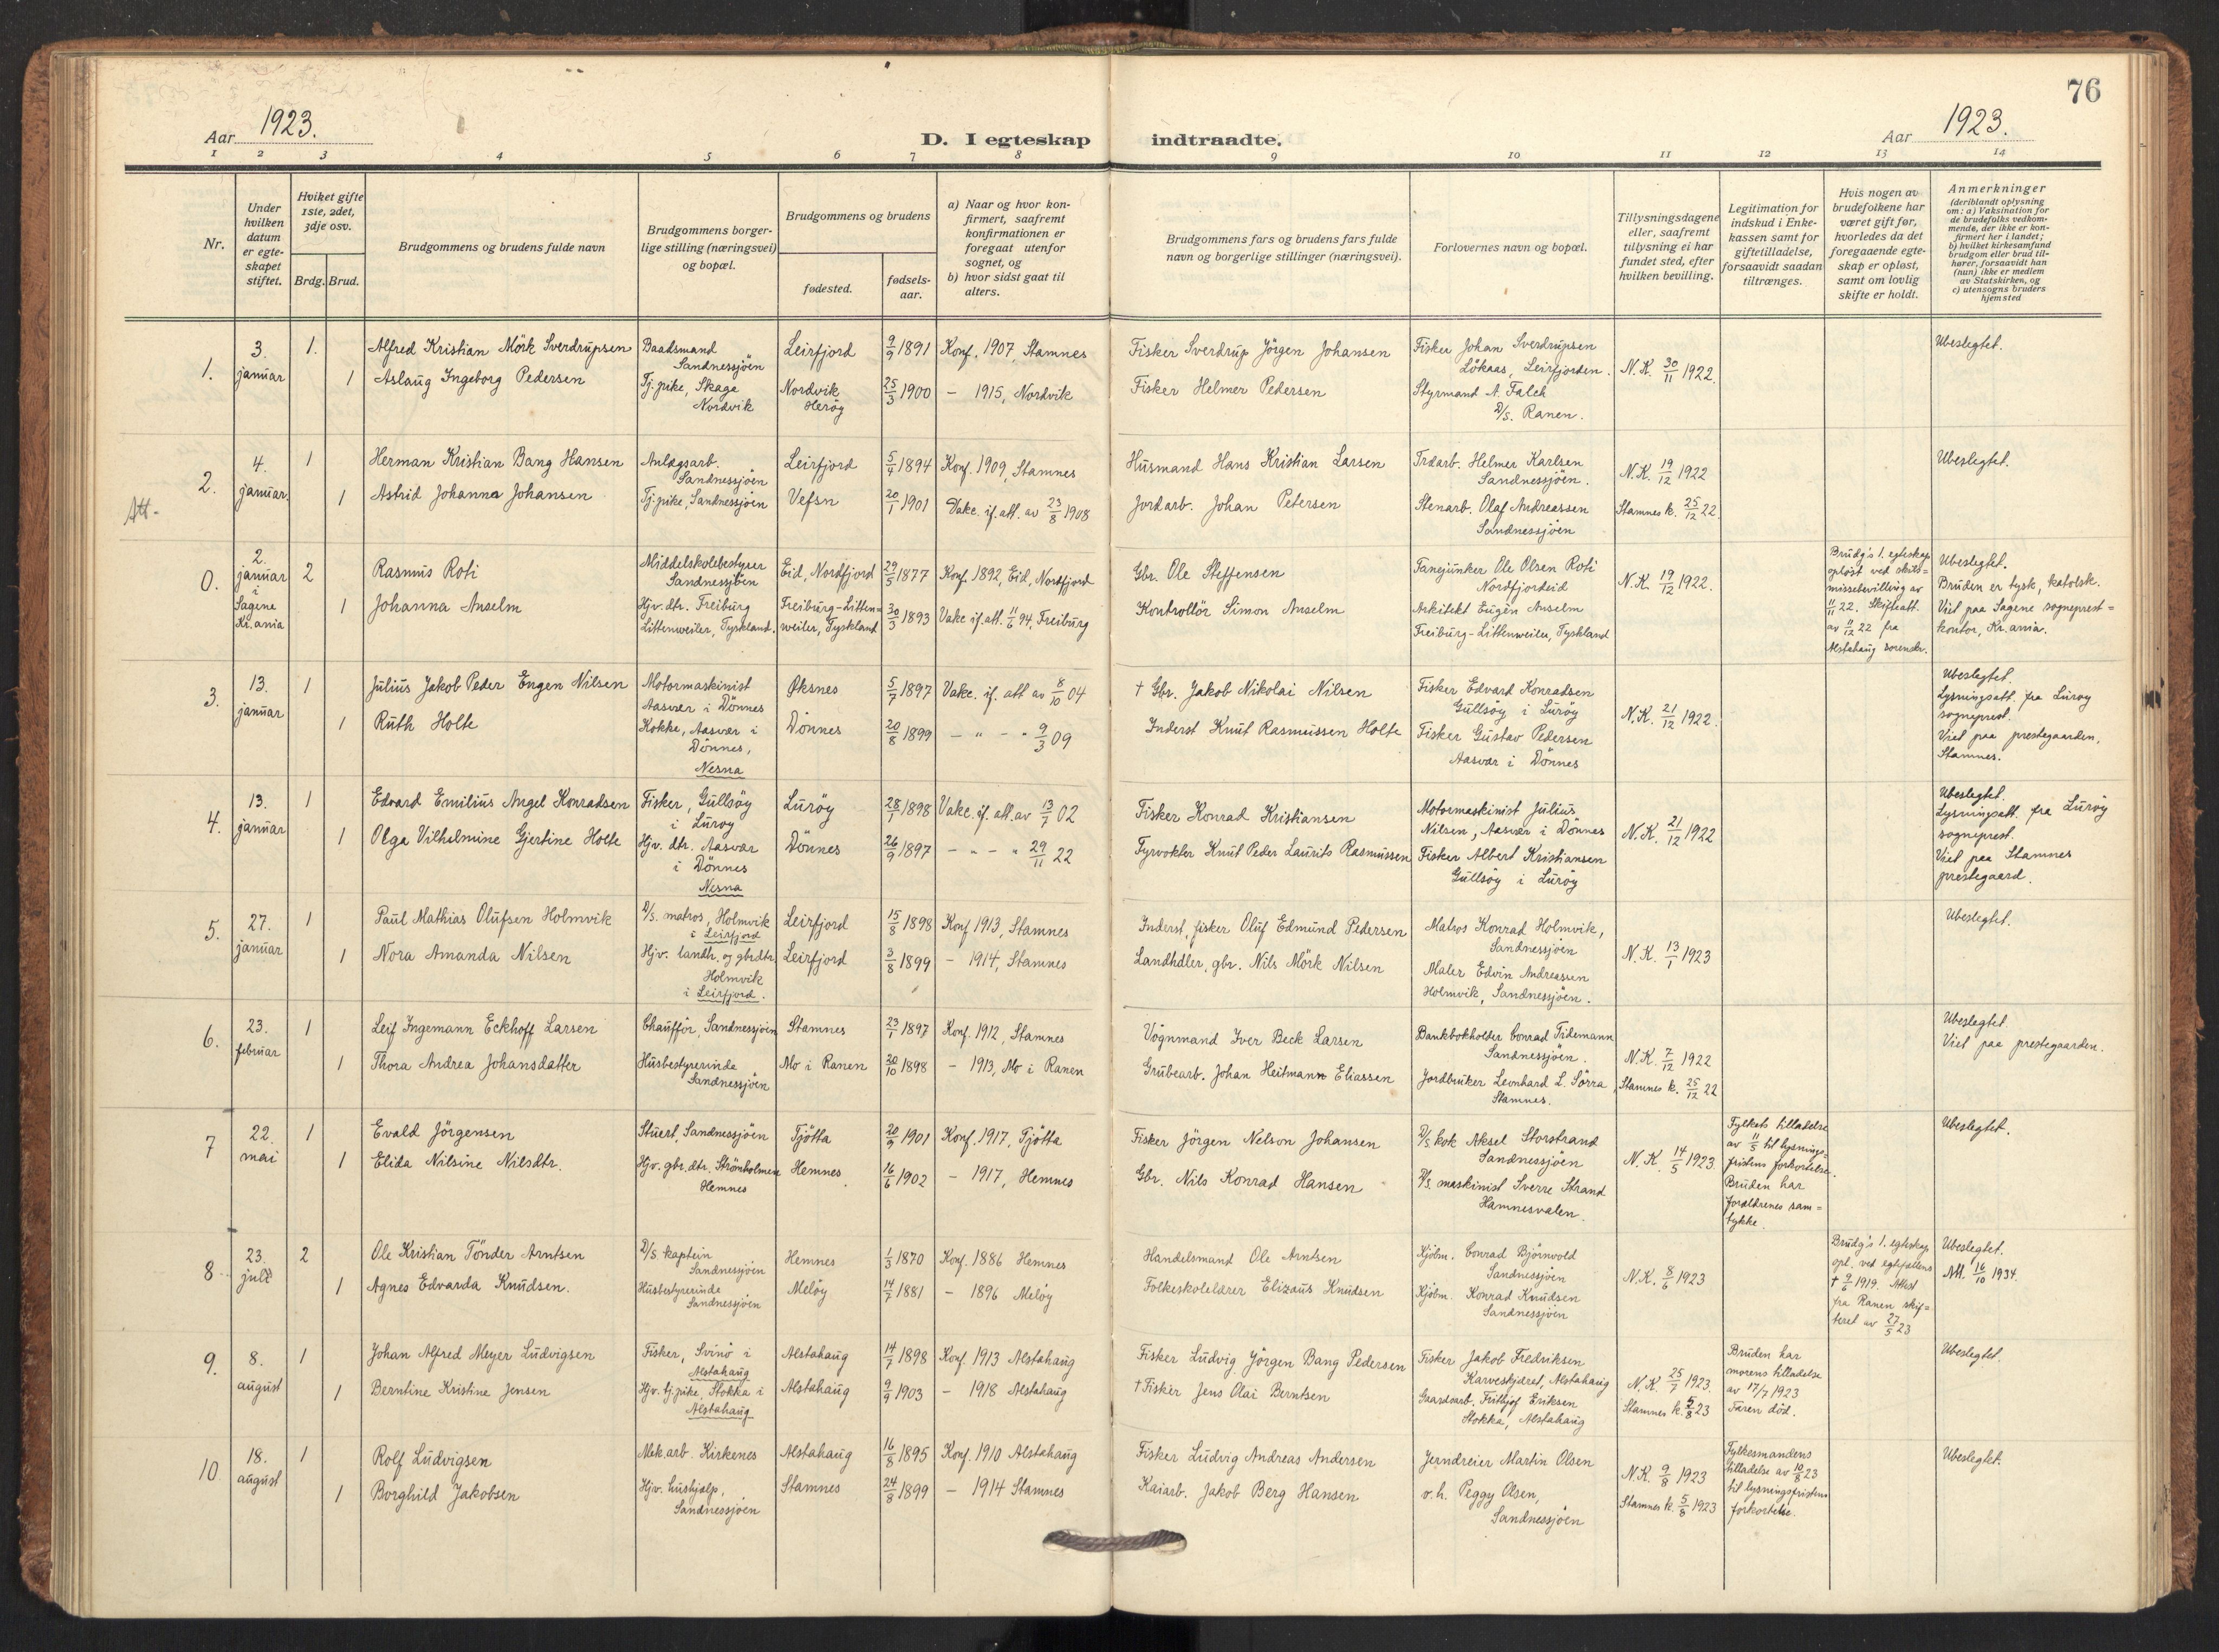 76
Aar 1923.
D. I egteskap indtraadte.
Aar 1923.
1 2 3 4 5 6 7 8 9 10 11 12 13 14
Nr.
Under hvilken datum er egteskapet stiftet.
Hviket gifte 1ste, 2det, 3dje osv.
Brdg. Brud.
Brudgommens og brudens fulde navn
Brudgommens borgerlige stilling (næringsvei) og bopæl.
Brudgommens og brudens
fødested.
fødselsaar.
a) Naar og hvor konfirmert, saafremt konfirmationen er foregaat utenfor sognet, og
b) hvor sidst gaat til alters.
Brudgommens fars og brudens fars fulde navn og borgerlige stillinger (næringsvei).
Forlovernes navn og bopæl.
Tillysningsdagene eller, saafremt tillysning ei har fundet sted, efter hvilken bevilling.
Legitimation for indskud i Enkekassen samt for giftetilladelse, forsaavidt saadan tiltrænges.
Hvis nogen av brudefolkene har været gift før, hvorledes da det foregaaende egteskap er opløst, samt om lovlig skifte er holdt.
Anmerkninger
(deriblandt oplysning om: a) Vaksination for de brudefolks vedkommende, der ikke er konfirmert her i landet; b) hvilket kirkesamfund brudgom eller brud tilhører, forsaavidt han (hun) ikke er medlem av Statskirken, og c) utensogns bruders hjemsted
1. 3. januar 1. Alfred Kristian Mörk Sverdrupsen Baadsmand Sandnessjöen Leirfjord 9/9 1891 Konf. 1907, Stamnes Fisker Sverdrup Jörgen Johansen Fisker Johan Sverdrupsen Lökaas, Leirfjorden. N.K. 30/11 1922. Ubeslegtet.
1 Aslaug Ingeborg Pedersen Tj. pike, Skaga Nordvik Nordvik Heröy 25/3 1900 - 1915, Nordvik Fisker Helmer Pedersen Styrmand A. Falch D/S. Ranen.
Att-
2. 4. januar. 1 Herman Kristian Bang Hansen Anlægsarb. Sandnessjöen Leirfjord 5/4 1894 Konf. 1909, Stamnes Husmand Hans Kristian Larsen Træarb. Helmer Karlsen Sandnessjöen. N.K. 19/12 1922 Ubeslegtet.
1 Astrid Johanna Johansen Tj. pike, Sandnessjöen Vefsn 20/1 1901 Vakc. if. att. av 23/8 1908 Jordarb. Johan Petersen Stenarb. Olaf Andreassen Sandnessjöen Stamnes k. 25/12 22.
0. 2. januar i Sagene Kr.ania 2 Rasmus Roti Middelskolebestyrer Sandnessjöen Eid, Nordfjord 29/5 1877 Konf. 1892, Eid, Nordfjord Gbr. Ole Steffensen Fanejunker Ole Olsen Roti Nordfjordeid N.K. 19/12 1922. Brudg's 1. egteskap oplöst ved skilsmissebevilling av 11/11 22. Skifteatt. av 11/12 22 fra Alstahaug sorenskr. Ubeslegtet. Bruden er tysk, katolsk. Viet paa Sagene sogneprestkontor, Kr.ania.
1 Johanna Anselm Hjv. dtr. Freiburg Littenweiler, Tyskland. Freiburg-Littenweiler, Tyskland 30/3 1893 Vakc if. att. 11/6 94, Freiburg Kontrollör Simon Anselm Arkitekt Eugèn Anselm Freiburg-Littenweiler, Tyskland
3. 13. januar 1 Julius Jakob Peder Engen Nilsen Motormaskinist Aasvær i Dönnes Øksnes 5/7 1897 Vakc. if. att av 8/10 04 † Gbr. Jakob Nikolai Nilsen Fisker Edvard Konradsen Gullsöy i Luröy N.K. 21/12 1922. Ubeslegtet. Lysningsatt. fra Luröy sogneprest. Viet paa prestegaarden, Stamnes.
1 Ruth Holte Kokke, Aasvær i Dönnes, Nesna Dönnes 20/8 1899 - " - " 9/3 09 Inderst Knut Rasmussen Holte Fisker Gustav Pedersen Aasvær i Dönnes
4. 13. januar 1 Edvard Emilius Angel Konradsen Fisker, Gullsöy i Luröy Luröy 28/1 1898 Vakc. if. att. av 13/7 02 Fisker Konrad Kristiansen Motormaskinist Julius Nilsen, Aasvær i Dönnes N.K. 21/12 1922 Ubeslegtet. Lysningsatt. fra Luröy sogneprest. Viet paa Stamnes prestegaard.
1 Olga Vilhelmine Gjertine Holte Hjv. dtr. Aasvær i Dönnes Nesna Dönnes 26/9 1897 - " - " 29/11 22 Fyrvokter Knut Peder Laurits Rasmussen Fisker Albert Kristiansen Gullsöy i Luröy
5. 27. januar 1 Paul Mathias Olufsen Holmvik D/S. matros, Holmvik i Leirfjord Leirfjord 15/8 1898 Konf 1913, Stamnes Inderst, fisker Oluf Edmund Pedersen Matros Konrad Holmvik, Sandnessjöen N.K. 13/1 1923 Ubeslegtet.
1 Nora Amanda Nilsen Hjv. landh. og gbrdtr. Holmvik i Leirfjord. Leirfjord 3/8 1899 - 1914, Stamnes Landhdler, gbr. Nils Mörk Nilsen Maler Edvin Andreassen Holmvik, Sandnessjöen.
6. 23. februar 1 Leif Ingemann Eckhoff Larsen Chaufför, Sandnessjöen Stamnes 23/1 1897 Konf. 1912, Stamnes Vognmand Iver Beck Larsen Bankbokholder Conrad Tidemann Sandnessjöen. N.K. 7/12 1922 Ubeslegtet. Viet paa prestegaarden.
1 Thora Andrea Johansdatter Husbestyrerinde Sandnessjöen Mo i Ranen 20/10 1898 - 1913, Mo i Ranen Grubearb. Johan Heitmann Eliassen Jordbruker Leonhard L. Sörra, Stamnes. Stamnes k. 25/12 22
7 22. mai 1 Evald Jörgensen Stuert, Sandnessjöen Tjötta 20/9 1901 Konf. 1917, Tjötta Fisker Jörgen Nelson Johansen D/S kok Aksel Storstrand Sandnessjöen N.K. 14/5 1923. Fylkets tilladelse av 11/5 til lysningsfristens forkortelse. Bruden har forældrenes samtykke. Ubeslegtet.
1 Elida Nilsine Nilsdtr. Hjv. gbr. dtr. Strömholmen Hemnes Hemnes. 16/6 1902 - 1917, Hemnes Gbr. Nils Konrad Hansen D/S. maskinist Sverre Strand Hamnesvalen.
8. 23. juli 2 Ole Kristian Tönder Arntsen D/S kaptein Sandnessjöen Hemnes 1/3 1870 Konf. 1886 Hemnes Handelsmand Ole Arntsen Kjöbm. Conrad Björnvold Sandnessjöen N.K. 8/6 1923 Brudg's 1. egteskap opl. ved egtefællens † 9/6 1919. Attest fra Ranen skifteret av 27/5 23 Ubeslegtet. Att. 16/10 1934.
1 Agnes Edvarda Knudsen. Husbestyrerinde Sandnessjöen Melöy 14/7 1881 - 1896 Melöy Folkeskolelærer Elizæus Knudsen Kjöbm. Konrad Knudsen Sandnessjöen
9. 8. august 1 Johan Alfred Meyer Ludvigsen Fisker, Svinö i Alstahaug Alstahaug 14/7 1898 Konf. 1913 Alstahaug Fisker Ludvig Jörgen Bang Pedersen Fisker Jakob Fredriksen Karvestjæret, Alstahaug N.K. 25/7 1923. Bruden har morens tilladelse av 17/7 1923 Faren död. Ubeslegtet.
1 Berntine Kristine Jensen Hjv. tj. pike, Stokka i Alstahaug Alstahaug 9/9 1903 - 1918 Alstahaug † Fisker Jens Olai Berntsen Gaardsarb. Frithjof Eriksen Stokka, Alstahaug Stamnes k. 5/8 23
10 18. august 1 Rolf Ludvigsen Mek. arb. Kirkenes Alstahaug 16/8 1895 Konf. 1910 Alstahaug Fisker Ludvig Andreas Andersen Jerndreier Martin Olsen N.K. 9/8 1923 Fylkesmandens tilladelse av 10/8 23 til lysningsfristens forkortelse. Ubeslegtet.
1 Borghild Jakobsen Hjv. hushjælp, Sandnessjöen Stamnes 24/8 1899 - 1914 Stamnes Kaiarb. Jakob Berg Hansen o.h. Peggy Olsen, Sandnessjöen Stamnes k. 5/8 1923